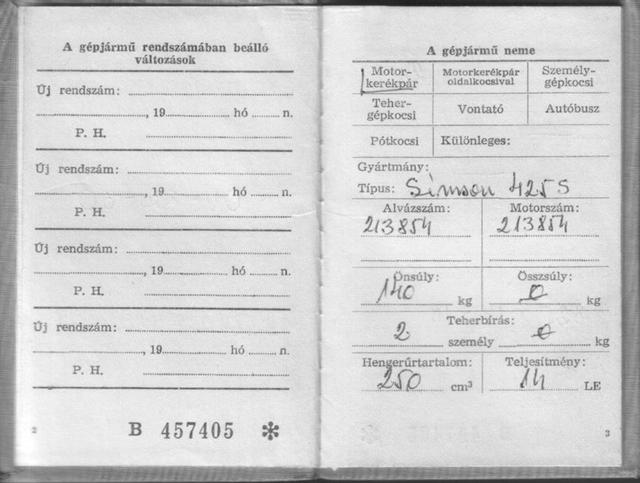 A gépjármű rendszámában beálló
változások
Új rendszám:
, 19 hó n.
P. H.
Új rendszám:
, 19 hó n.
P. H.
Új rendszám:
, 19 hó n.
P. H.
Új rendszám:
, 19 hó n.
P. H.
2
B 457405 *
A gépjármű neme
Motor-
kerékpár
Motorkerékpár
oldalkocsival
Személy-
gépkocsi
Teher-
gépkocsi
Vontató
Autóbusz
Pótkocsi
Különleges:
Gyártmány:
Típus: Simson 425S
Alvázszám: Motorszám:
213854 213854
Önsúly: Összsúly:
140 kg 0 kg
Teherbírás:
2 személy 0 kg
Hengerűrtartalom: Teljesítmény:
250 cm³ 14 LE
3